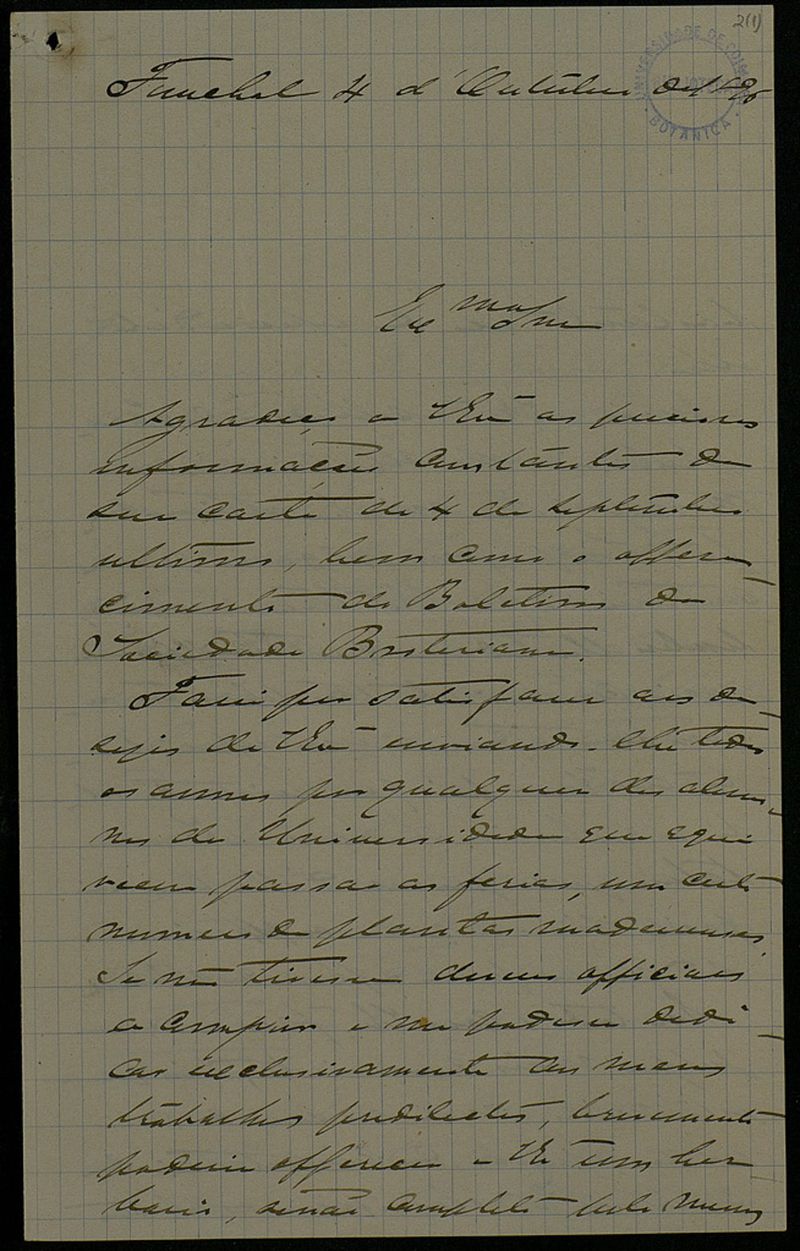 2(1)
UNIVERSIDADE DE COIMBRA
BOTANICA
Funchal 4 d'Outubro de
Exmo Snr
Agradeço a VExa as preciosas
informações constantes da
sua carta de 4 de Septembro
ultimo, bem como o offere-
cimento do Boletim da
Sociedade Broteriana.
Farei por satisfazer aos de-
sejos de VExa enviando-lhe todos
os annos por qualquer dos alum-
nos da Universidade que aqui
veem passar as ferias, um certo
numero de plantas madeirenses.
Se não tivesse deveres officiaes
a cumprir e me podesse dedi-
car exclusivamente aos meus
trabalhos predilectos, brevemente
poderia offerecer a VExa um her-
bario, senão completo pelo menos